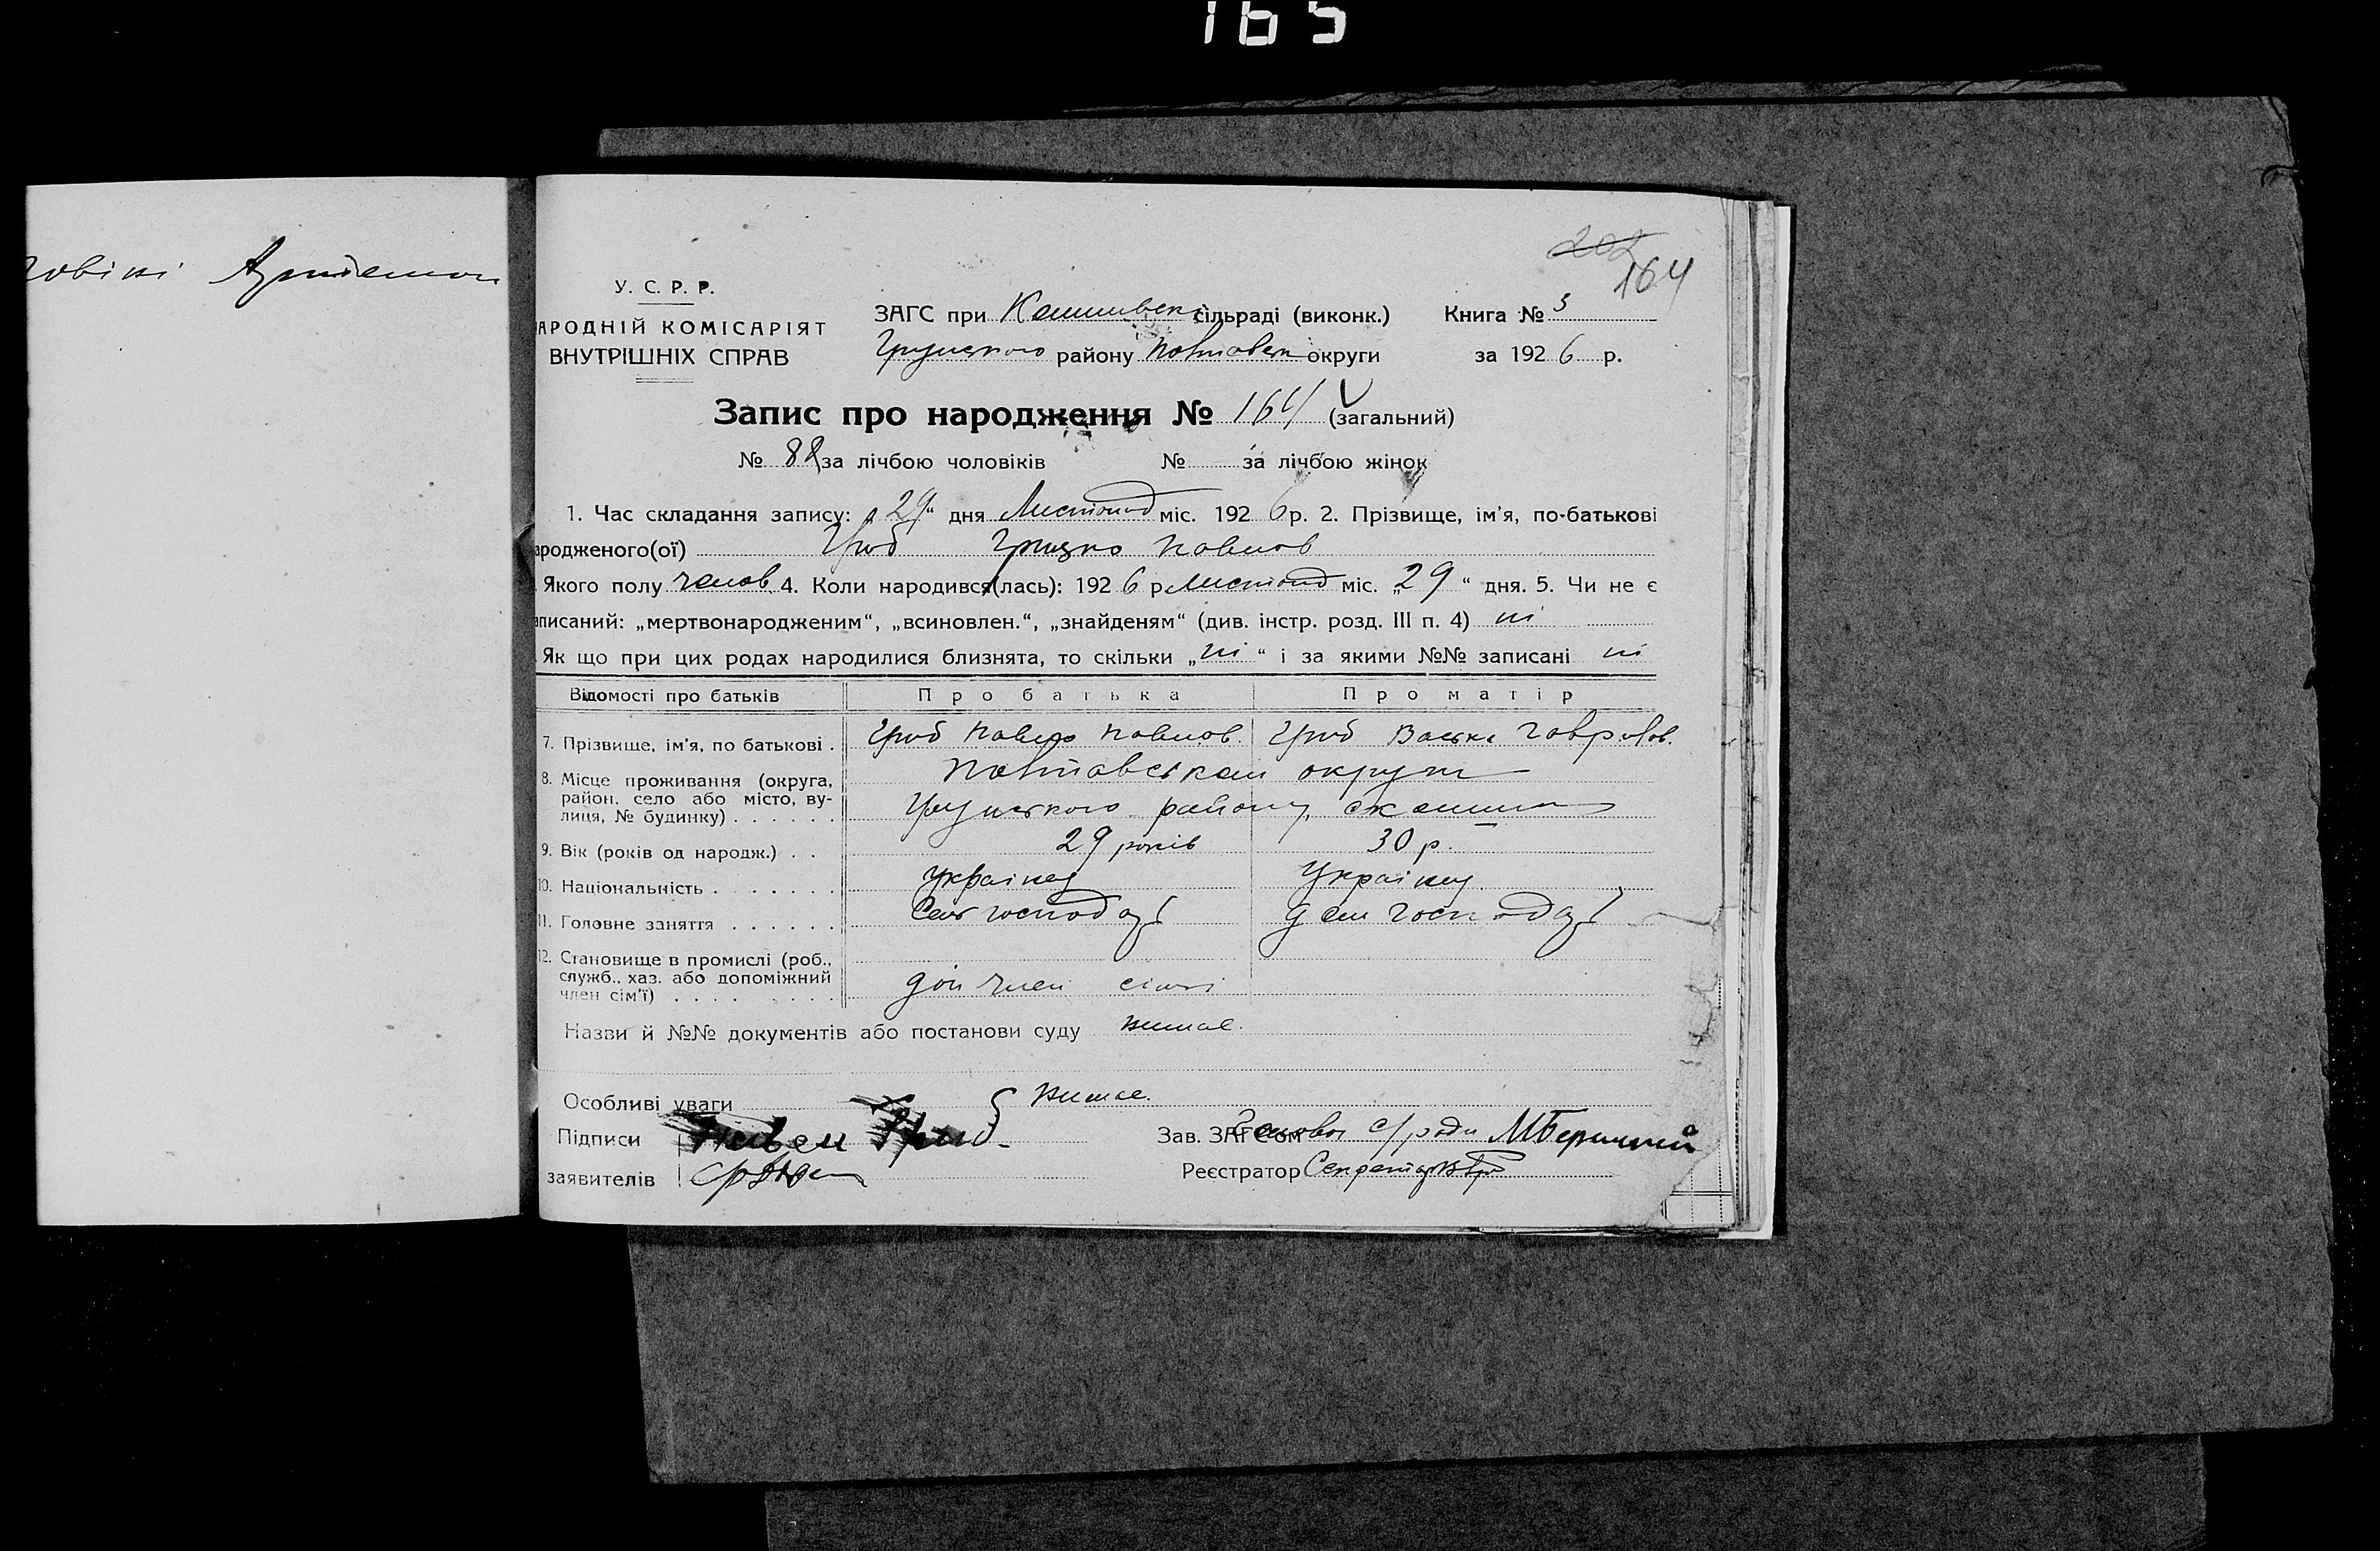 165
202
164
У. С. Р. Р.
АРОДНІЙ КОМІСАРІЯТ
ВНУТРІШНІХ СПРАВ
ЗАГС при сільраді (виконк.) Книга № 3
Грунського району Полтавськ округи за 1926 р.
Запис про народження № 164 (загальний)
№ 82 за лічбою чоловіків № за лічбою жінок
1. Час складання запису: „29“ дня Листопад міс. 1926 р. 2. Прізвище, ім'я, по-батькові
ародженого(ої) Гриб Грицко Павлов
Якого полу чолов. 4. Коли народився(лась): 1926 р Листопад міс. „29“ дня. 5. Чи не є
аписаний: „мертвонародженим“, „всиновлен.“, „знайденям“ (див. інстр. розд. III п. 4) ні
Як що при цих родах народилися близнята, то скільки „ні“ і за якими №№ записані ні
Відомості про батьків Про батька Про матір
7. Прізвище, ім'я, по батькові . Гриб Павло Павлов. Гриб
8. Місце проживання (округа, район, село або місто, вулиця, № будинку) . . . . . . Полтавської округи
Грунського району,
9. Вік (років од народж.) . . 29 років 30 р.
10. Національність . . . . . . . Українец Українец
11. Головне заняття . . . . . . Сель господар
12. Становище в промислі (роб., служб., хаз. або допоміжний член сім'ї) . . . . . . . . . член сімї
Назви й №№ документів або постанови суду немає.
Особливі уваги Немає.
Підписи Гриб Зав. ЗАГСом Голова с/ради
заявителів Реєстратор Секретар